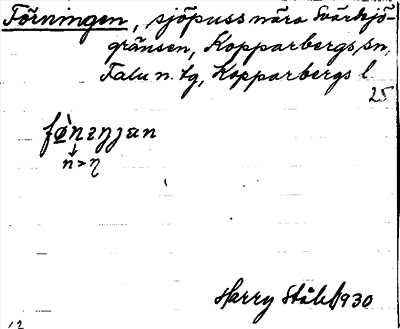 Förningen, sjöpuss nära Svärdsjö-
gränsen, Kopparbergs sn,
Falu n. tg, Kopparbergs l.
25
fø̀nɛŋɟan
n > ŋ
Harry Ståhl 1930
12